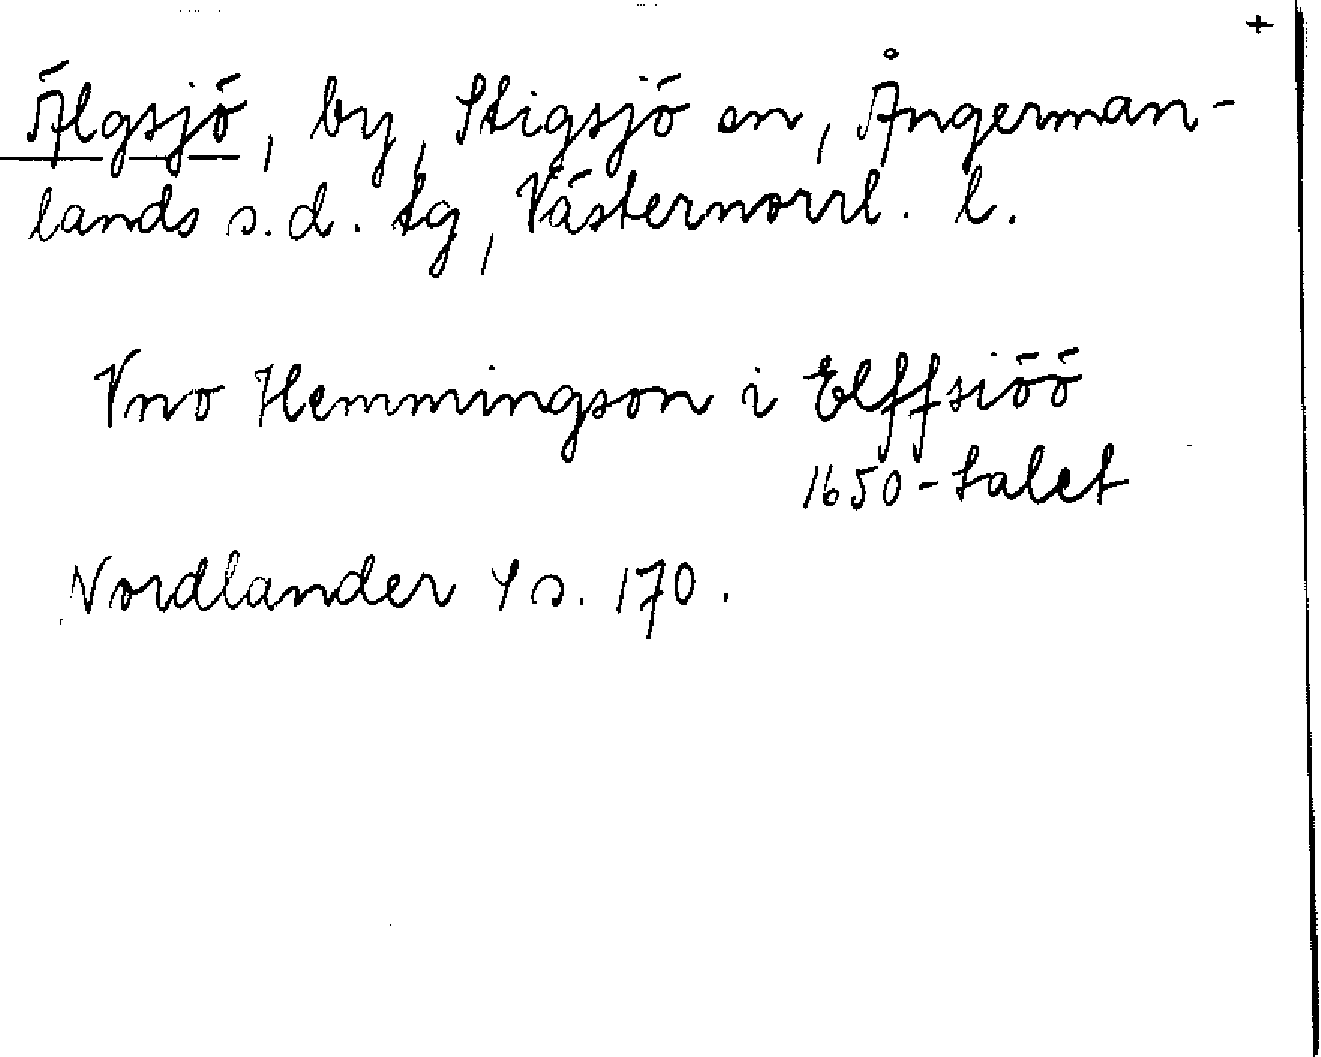 +
Älgsjö, by, Stigsjö sn, Ångerman-
lands s.d. tg, Västernorrl. l.
Vno Hemmingson i Elffsiöö
1650-talet
Nordlander 4 s. 170.